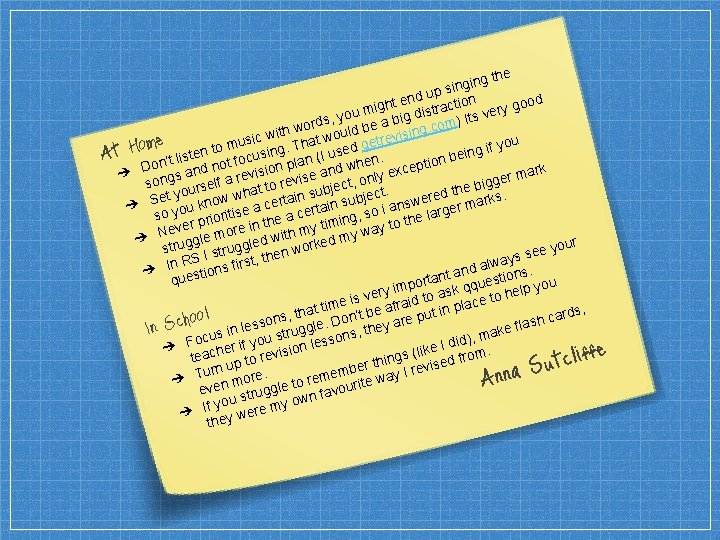 At Home
➔ Don't listen to music with words, you might end up singing the
songs and not focusing. That would be a big distraction
➔ Set yourself a revision plan (I used getrevising.com) Its very good
so you know what to revise and when.
➔ Never prioritise a certain subject, only exception being if you
struggle more in the a certain subject.
➔ In RS I struggled with my timing, so i answered the bigger mark
questions first, then worked my way to the larger marks.
In School
➔ Focus in lessons, that time is very important and always see your
teacher if you struggle. Don't be afraid to ask qquestions.
➔ Turn up to revision lessons, they are put in place to help you
even more.
➔ If you struggle to remember things (like I did), make flash cards,
they were my own favourite way I revised from.
Anna Sutcliffe